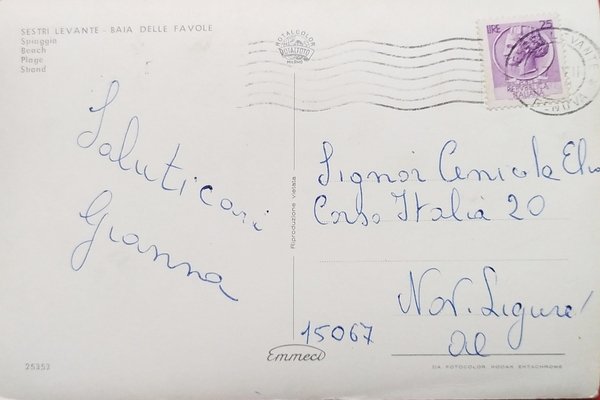 SESTRI LEVANTE - BAIA DELLE FAVOLE
Spiaggia
Beach
Plage
Strand
ROTALCOLOR
ROTALFOTO
MILANO
LIRE 25
Saluti cari
Gianna
Riproduzione vietata
Signor Cenicola
Corso Italia 20
15067
Nov. Ligure
al
25352
Emmeci
DA FOTOCOLOR KODAK EKTACHROME